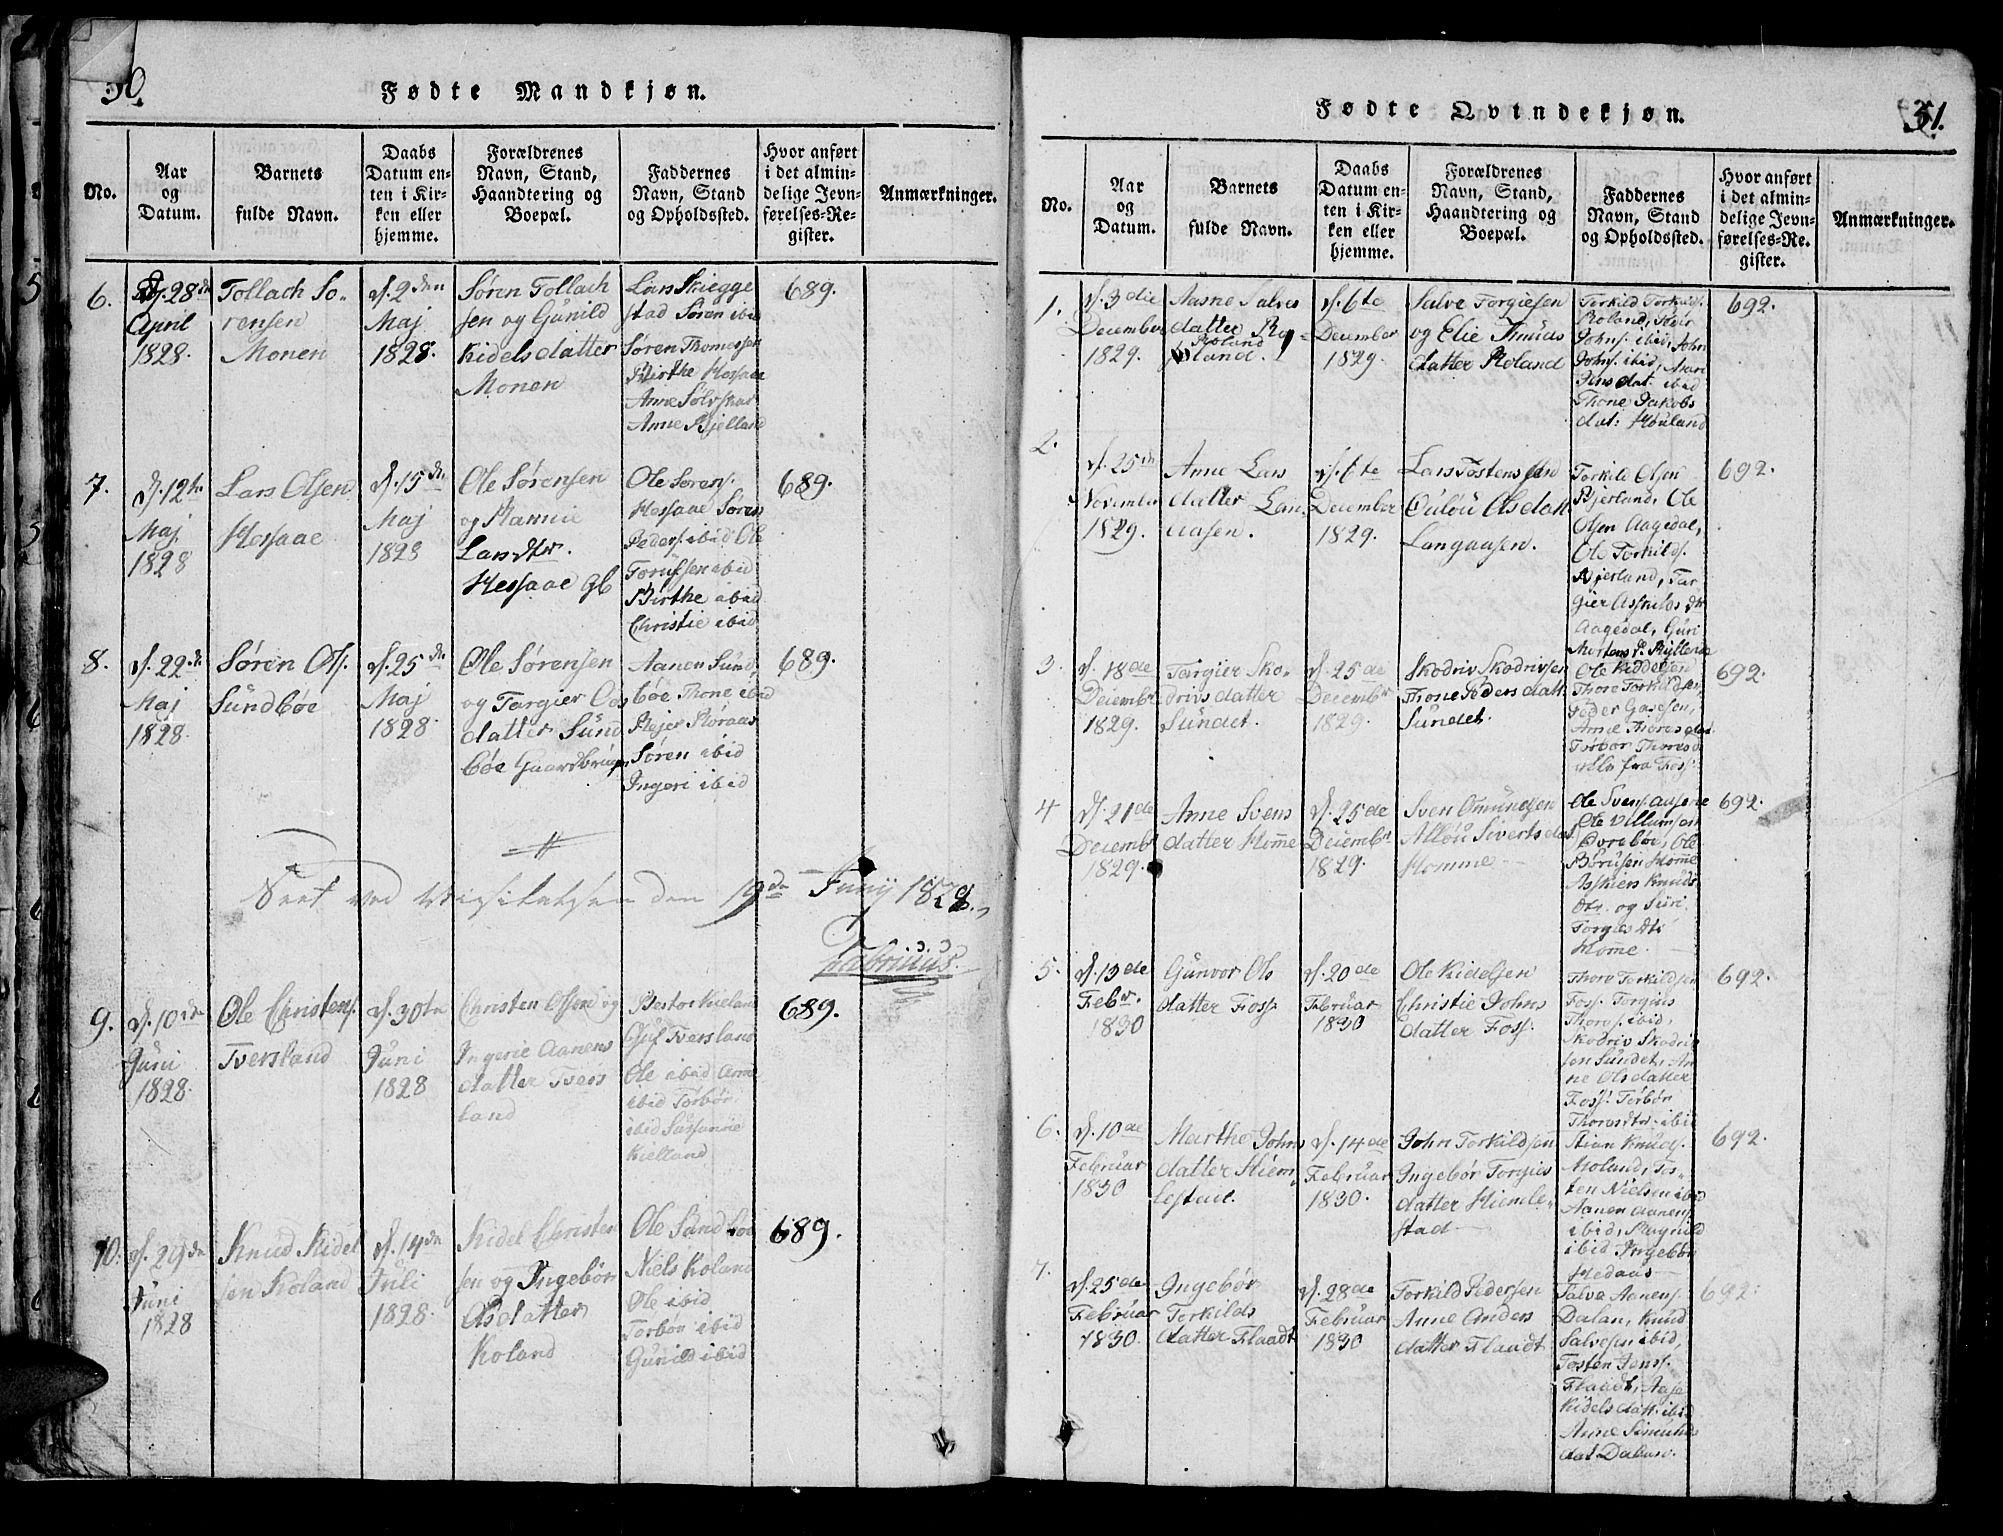 30.
Fødte Mandkjøn.
No.
Aar
og
Datum.
Barnets
fulde Navn.
Daabs
Datum en-
ten i Kir-
ken eller
hjemme.
Forældrenes
Navn, Stand,
Haandtering og
Boepæl.
Faddernes
Navn, Stand
og Opholdssted.
Hvor anført
i det almin-
delige Jevn-
førelses-Re-
gister.
Anmærkninger.
6.
d. 28de
April
1828.
Tollach So-
rensen
Monen
d. 2den
Maj
1828.
Søren Tollach
sen og Gunild
Kidelsdatter
Monen
Lars Skiegge
stad Søren ibid
Søren Thomessen
Birthe Hessaae
Anne
Anne Bjelland
689.
7.
d. 12te
Maj
1828
Lars Olsen
Hessaae
d. 15de
Maj
1828
Ole Sørensen
og
Larsdtr.
Hessaae Gb
Ole Sørens.
Hessaae Søren
Peders. ibid Ole
ibid
Birthe ibid
Christie ibid
689.
8.
d. 22de
Maj
1828.
Søren Ols.
Sundbøe
d. 25de
Maj
1828
Ole Sørensen
og Targier Oos
datter Sund
bøe
Aanen Sund
bøe Thone ibid
Søren ibid
Ingeri ibid
689.
Seet ved Visitatsen den 19de Junij 1828.
Fabricius.
9.
d. 10de
Juni
1828.
Ole Christens.
Tversland
d. 30te
Juni
1828
Christen Olsen og
Ingerie Aanens
datter Tvers
land
Tversland
Ole ibid Anne
ibid Torbør
ibid Susanne
Kielland
689.
10.
d. 29de
Juni
1828
Knud Kidel
sen Koland
d. 14de
Juli
1828.
Kidel Christen
sen og Ingebør
Olsdatter
Koland
Ole Sundboe
Niels Koland
Ole ibid
Torbør ibid
Gunild ibid
689.
31.
Fødte Qvindekjøn.
No.
Aar
og
Datum.
Barnets
fulde Navn.
Daabs
Datum en-
ten i Kir-
ken eller
hjemme.
Forældrenes
Navn, Stand,
Haandtering og
Boepæl.
Faddernes
Navn, Stand
og Opholdssted.
Hvor anført
i det almin-
delige Jevn-
førelses-Re-
gister.
Anmærkninger.
1.
d. 3die
December
1829.
Aasne Salves
datter
Roland
d. 6te
December
1829.
Salve Torgiesen
og Elie Knuds
datter Roland
Torkild Torkilds.
Roland,
Johns. ibid, John
Johns. ibid,
Jensdat. ibid
Thone Jakobs
dat:
692.
2.
d. 25de
November
1829.
Anne Lars
datter Lan
aasen.
d. 6te
December
1829.
Lars Tostensen
Olsdatt.
Langaasen.
Torkild Olsen
Bjerland, Ole
Olsen Aagedal,
Ole Torkilds.
Bjerland, Tar
gier Askilds dtr
Aagedal, Guri
692.
3.
d. 18de
Decembr
1829.
Targier Sko-
drivsdatter
Sundet.
d. 25de
Decembr
1829.
Skodriv Skodrivsen
Thone Pedersdatt.
Sundet.
Ole Kiddelsen
Thore Torkildsen,
Peder
Anne Thoresdat
Torbør Thoresd.
alle fra Foss.
692.
4
d. 21de
Decembr
1829.
Anne Svens
datter Homme
d. 25de
Decembr
1829.
Sven Omundsen
Siverts dat
Homme
Ole Svens.
Ole Villumsen
Øvrebøe, Ole
Homme
Knuds
Dtr. og Siri
Torgies Dtr
Homme.
692.
5.
d. 13de
Febr.
1830
Gunvor Ols
datter Foss.
d. 20de
Februar
1830
Ole Kidelsen
Christie Johns
datter Foss.
Thore Torkildsen
Foss. Torgius
Thores. ibid,
Skodriv Skodriv
sen Sundet, An
ne Olsdatter
Foss. Torbør
Thoresdtr. ibid
692.
6.
d. 10de
Februar
1830
Marthe Johns
datter Hiem
lestad.
d. 14de
Februar
1830.
John Torkildsen
Ingebør Torgies
datter Hiemle-
stad
Stian Knuds.
Moland, Tos-
ten Nielsen ibid
Aanen Aanens.
ibid, Ragnild
ibid Ingebør
Hedaas
692.
7.
d. 25de
Februar
1830.
Ingebør
Torkilds
datter Flaadt
d. 28de
Februar
1830
Torkild Pedersen
Anne Anders
datter Flaadt
Salve Aanens.
Dalan, Knud
Salvesen ibid,
Tosten Jens.
Flaadt, Aase
Kidelsdatt. ibid
Anne Simunds
dat Dalane.
692.